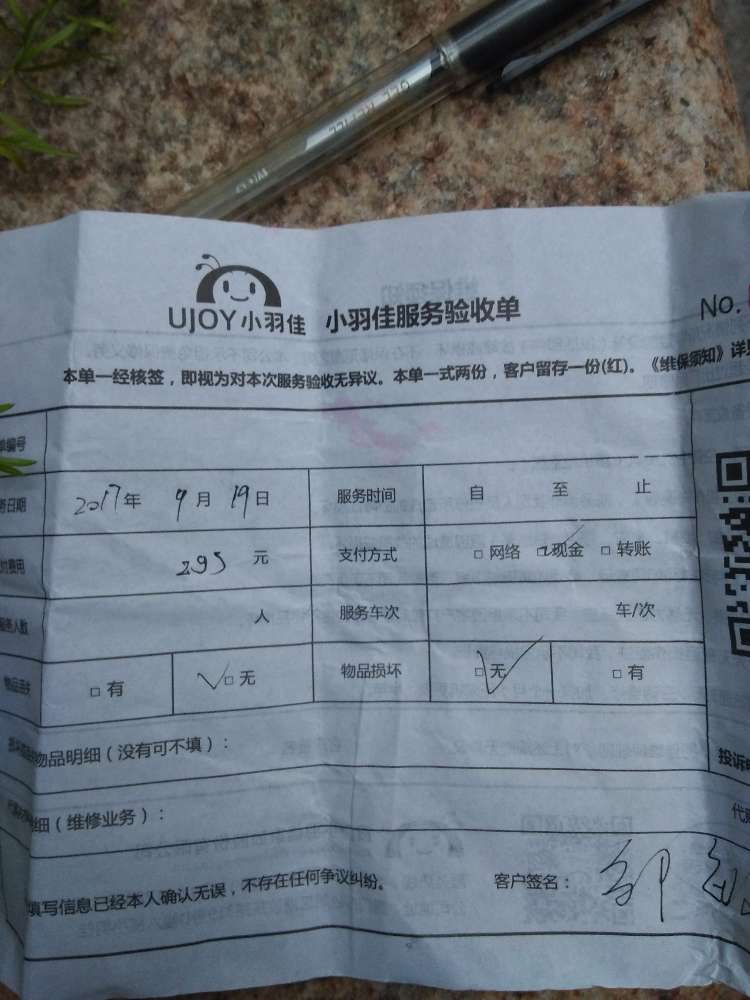 GEL REFILL
UJOY小羽佳 小羽佳服务验收单
No.
本单一经核签，即视为对本次服务验收无异议。本单一式两份，客户留存一份(红)。《维保须知》详见
单编号
务日期 2017年 9月 19日 服务时间 自 至 止
费用 295 元 支付方式 □ 网络 ☑现金 □ 转账
服务人数 人 服务车次 车/次
物品丢失 □ 有 ✓□ 无 物品损坏 ✓□ 无 □ 有
物品明细（没有可不填）：
投诉
细（维修业务）：
填写信息已经本人确认无误，不存在任何争议纠纷。 客户签名：